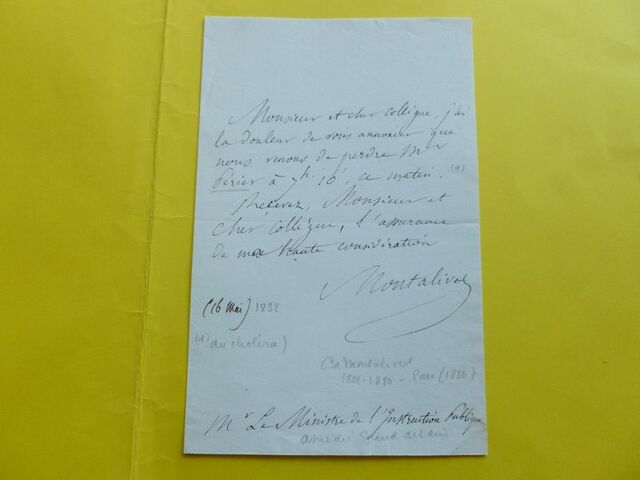 Monsieur et cher collègue, j'ai
la douleur de vous annoncer que
nous venons de perdre Mr
Périer à 7h 10', ce matin. (1)
Recevez, Monsieur et
cher collègue, l'assurance
de ma haute considération
Montalivet
(16 Mai) 1832
(1) du choléra)
Montalivet
1801-1880 - Pair (1826)
Mr Le Ministre de l'Instruction Publique